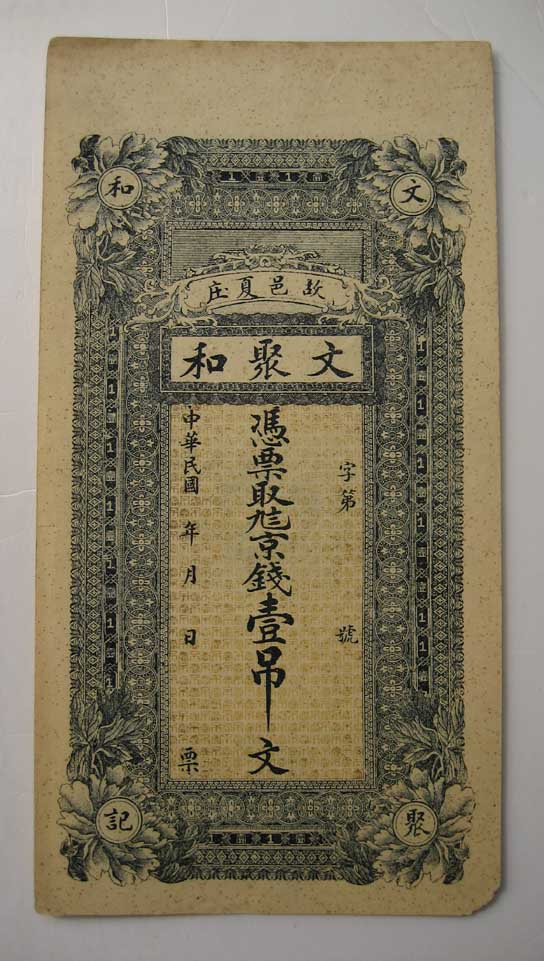 文
和
故邑夏庄
文聚和
字第 號
憑票取 京錢壹吊文
中華民國 年 月 日 票
聚
記